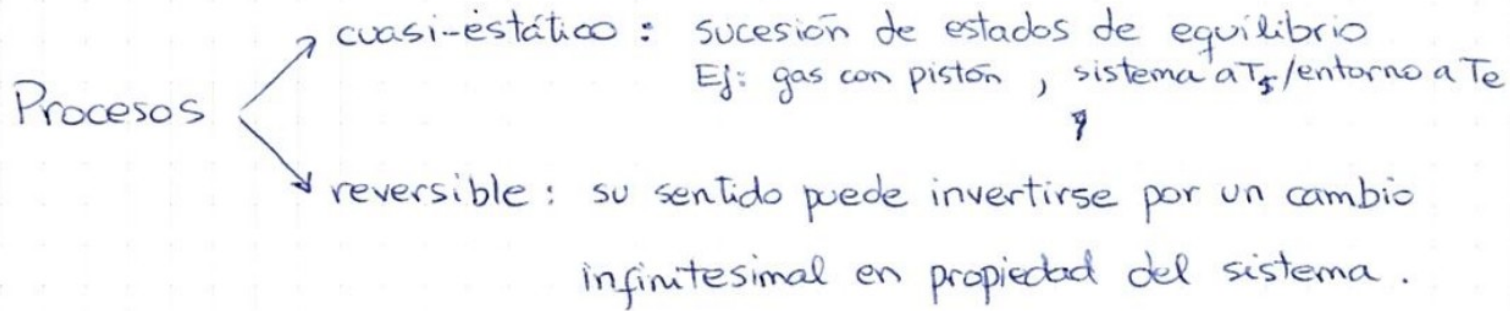 cuasi-estático : sucesión de estados de equilibrio
Ej: gas con pistón , sistema a Ts/entorno a Te
Procesos
y
reversible : su sentido puede invertirse por un cambio
infinitesimal en propiedad del sistema .